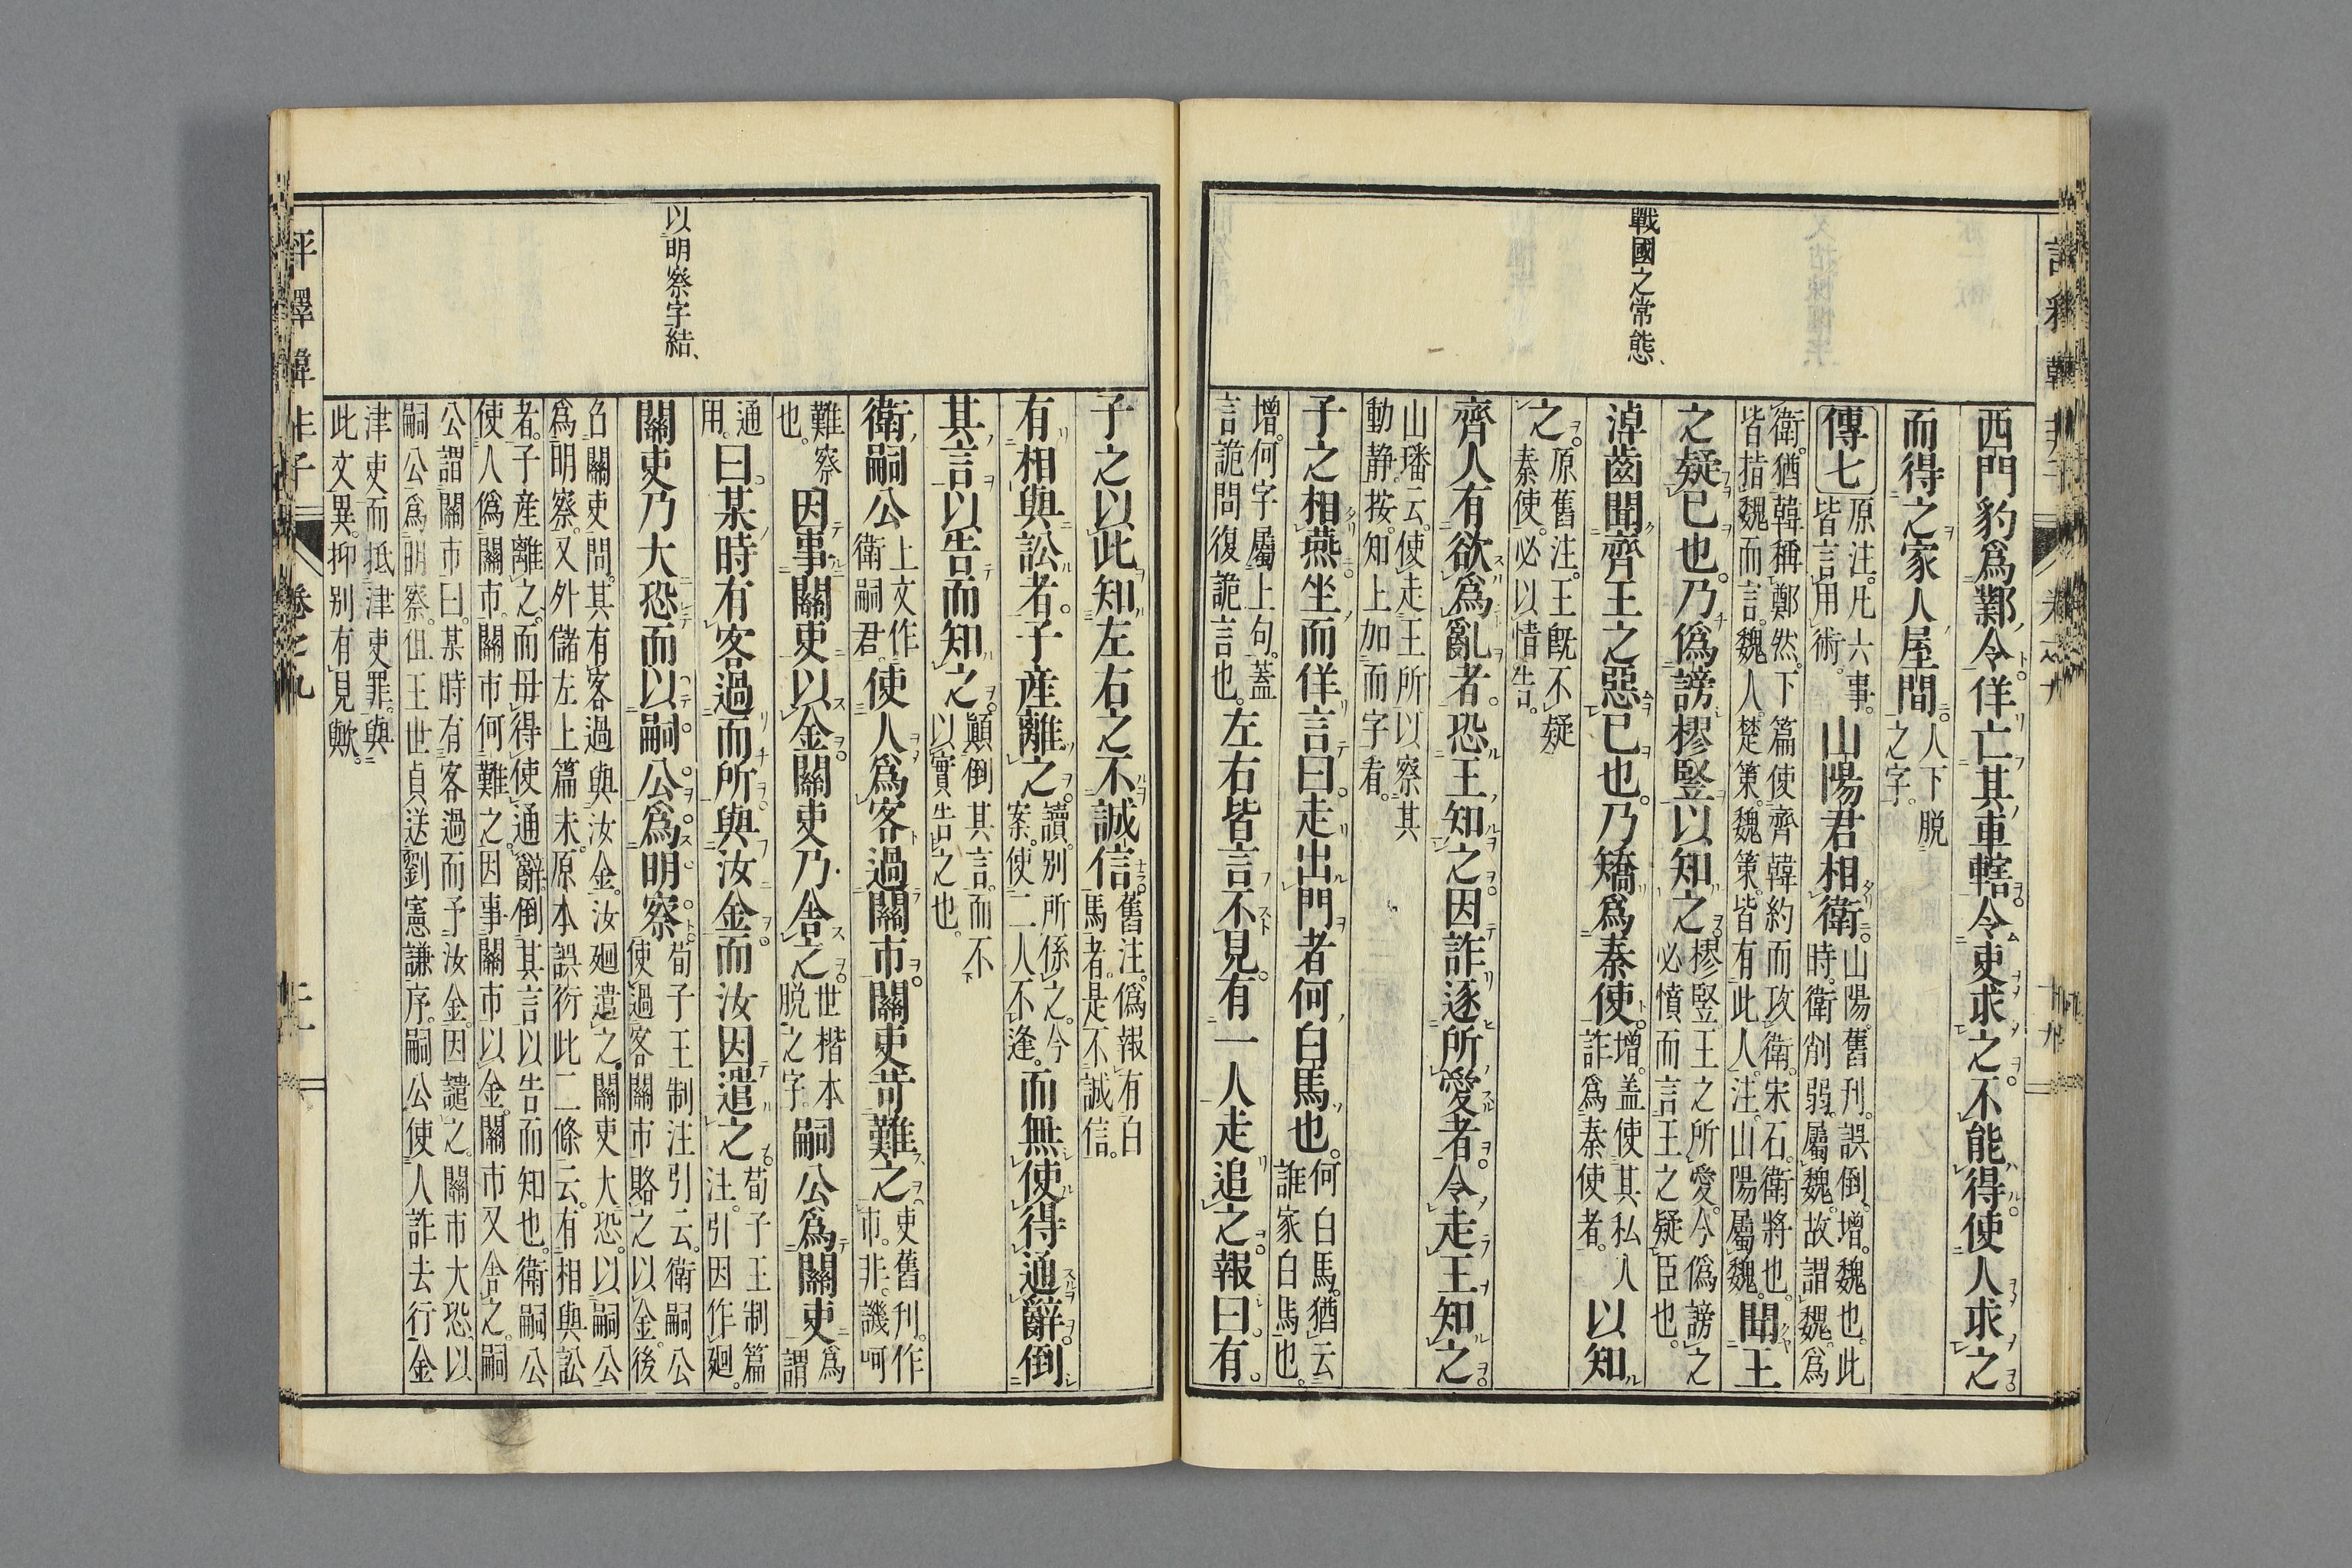 戰國之常態、
西門豹爲鄴令佯亡其車轄令吏求之不能得使人求之
而得之家人屋間人下脱之字。
傳七原注。凡六事。皆言用術。山陽君相衛。山陽。舊刋。誤倒。增。魏也。此時。衛削弱。屬魏。故謂魏。爲
衛。猶韓稱鄭然。下篇使齊韓約而攻衛。宋石。衛將也。皆指魏而言。魏人。楚策。魏策。皆有此人。注。山陽屬魏。聞王
之疑已也。乃僞謗樛竪以知之樛竪王之所愛。今僞謗之必憤而言王之疑臣也。
淖齒聞齊王之惡已也。乃矯爲秦使。增。盖使其私人詐爲秦使者。以知
之。原舊注。王旣不疑秦使。必以情告。
齊人有欲爲亂者。恐王知之因詐逐所愛者令走王知之
山璠云。使走王所以察其動静。按。知上加而字看。
子之相燕坐而佯言曰。走出門者何白馬也。何白馬。猶云誰家白馬也。
增。何字屬上句。蓋言詭問復詭言也。左右皆言不見。有一人走追之報曰有。
子之以此知左右之不誠信。舊注。僞報有白馬者。是不誠信。
有相與訟者。子産離之。讀。别所係之。今案。使二人不逢。而無使得通辭。倒
其言以告而知之。顚倒其言。而不以實告之也。
衛嗣公上文作衛嗣君。使人爲客過關市。關吏苛難之吏舊刋。作市。非。譏呵
難察也。因事關吏以金關吏乃舍之。世楷本脱之字。嗣公爲關吏爲謂
通用。曰。某時有客過而所與汝金。而汝因遣之荀子王制篇注。引因作廻。
關吏乃大恐而以嗣公爲明察。荀子王制注引云。衛嗣公使過客關市賂之以金。後
召關吏問。其有客過與汝金。汝廻遣之。關吏大恐。以嗣公爲明察。又外儲左上篇末。原本誤衍此二條云。有相與訟
者。子産離之。而毋得使通辭。倒其言以告而知也。衛嗣公使人僞關市。關市何難之。因事關市以金。關市又舍之。嗣
公謂關市曰。某時有客過而予汝金。因譴之。關市大恐以嗣公爲明察。伹王世貞送劉憲謙序。嗣公使人詐去行金
津吏而抵津吏罪。與此文異。抑别有見歟。
以明察字結、